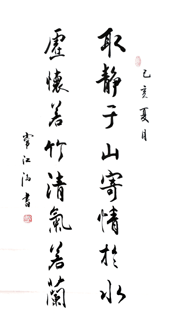 己亥夏月
取静于山寄情於水
虚懷若竹清氣若蘭
常江海書